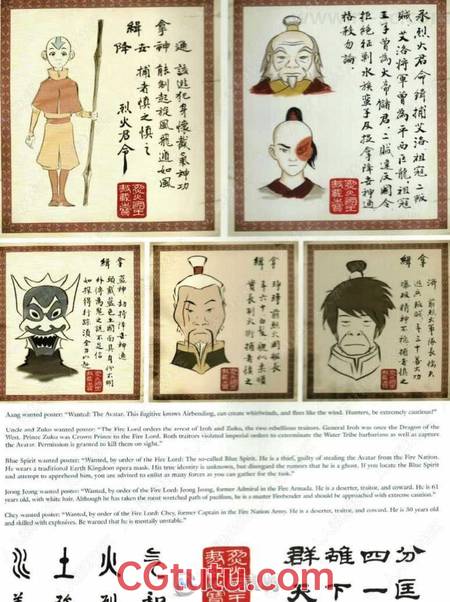 緝拿
降世神通
該逃犯身懷戴氣神功
能制起旋風飛遁如風
捕者慎之慎之
烈火君令
承烈火君命緝捕艾洛祖寇二叛
賊艾洛將軍曾為平西巨龍祖寇
王子曾為火帝儲君二賊違反國令
拒絕征剿水族蠻子及捉拿降世神通
格殺勿論
緝拿
藍神劫持降世神通
頭戴藍色土國面具身代不明
外傳為鬼之說不足信
如探得行踪須全力以赴
緝拿
前烈火國將領
年六十白髮貌似柔順
實長制火術捕者注意
緝拿
前烈火軍隊長懦夫
逃兵叛賊年三十善火功
爆破精神不穩捕者慎之
Aang wanted poster: "Wanted: The Avatar. This fugitive knows Airbending, can create whirlwinds, and flees like the wind. Hunters, be extremely cautious!"
Uncle and Zuko wanted poster: "The Fire Lord orders the arrest of Iroh and Zuko, the two rebellious traitors. General Iroh was once the Dragon of the
West. Prince Zuko was Crown Prince to the Fire Lord. Both traitors violated imperial orders to exterminate the Water Tribe barbarians as well as capture
the Avatar. Permission is granted to kill them on sight."
Blue Spirit wanted poster: "Wanted, by order of the Fire Lord: The so-called Blue Spirit. He is a thief, guilty of stealing the Avatar from the Fire Nation.
He wears a traditional Earth Kingdom opera mask. His true identity is unknown, but disregard the rumors that he is a ghost. If you locate the Blue Spirit
and attempt to apprehend him, you are advised to enlist as many forces as you can gather for the task."
Jeong Jeong wanted poster: "Wanted, by order of the Fire Lord: Jeong Jeong, former Admiral in the Fire Armada. He is a deserter, traitor, and coward. He is 61
years old, with white hair. Although he has taken the most wretched path of pacifism, he is a master Firebender and should be approached with extreme caution."
Chey wanted poster: "Wanted, by order of the Fire Lord: Chey, former Captain in the Fire Nation Army. He is a deserter, traitor, and coward. He is 30 years old
and skilled with explosives. Be warned that he is mentally unstable."
水土火气
群雄四分
天下一匡
CGtutu.com